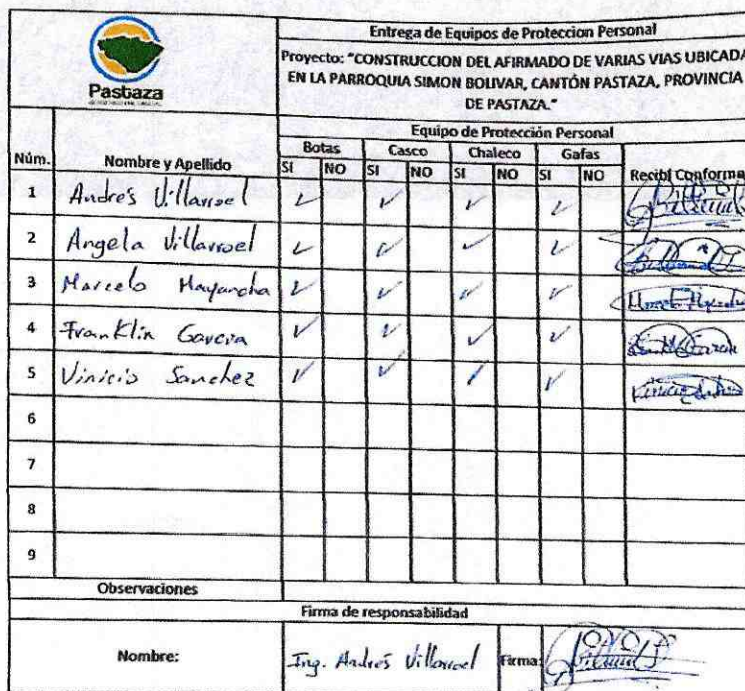 Pastaza
Entrega de Equipos de Proteccion Personal
Proyecto: "CONSTRUCCION DEL AFIRMADO DE VARIAS VIAS UBICADA
EN LA PARROQUIA SIMON BOLIVAR, CANTÓN PASTAZA, PROVINCIA
DE PASTAZA."
Equipo de Protección Personal
Núm. Nombre y Apellido Botas Casco Chaleco Gafas Recibí Conforme
SI NO SI NO SI NO SI NO
1 Andrés Villarroel ✓ ✓ ✓ ✓
2 Angela Villarroel ✓ ✓ ✓ ✓
3 Marcelo Mayancha ✓ ✓ ✓ ✓
4 Franklin Garcia ✓ ✓ ✓ ✓
5 Vinicio Sanchez ✓ ✓ ✓ ✓
6
7
8
9
Observaciones
Firma de responsabilidad
Nombre: Ing. Andrés Villarroel Firma: